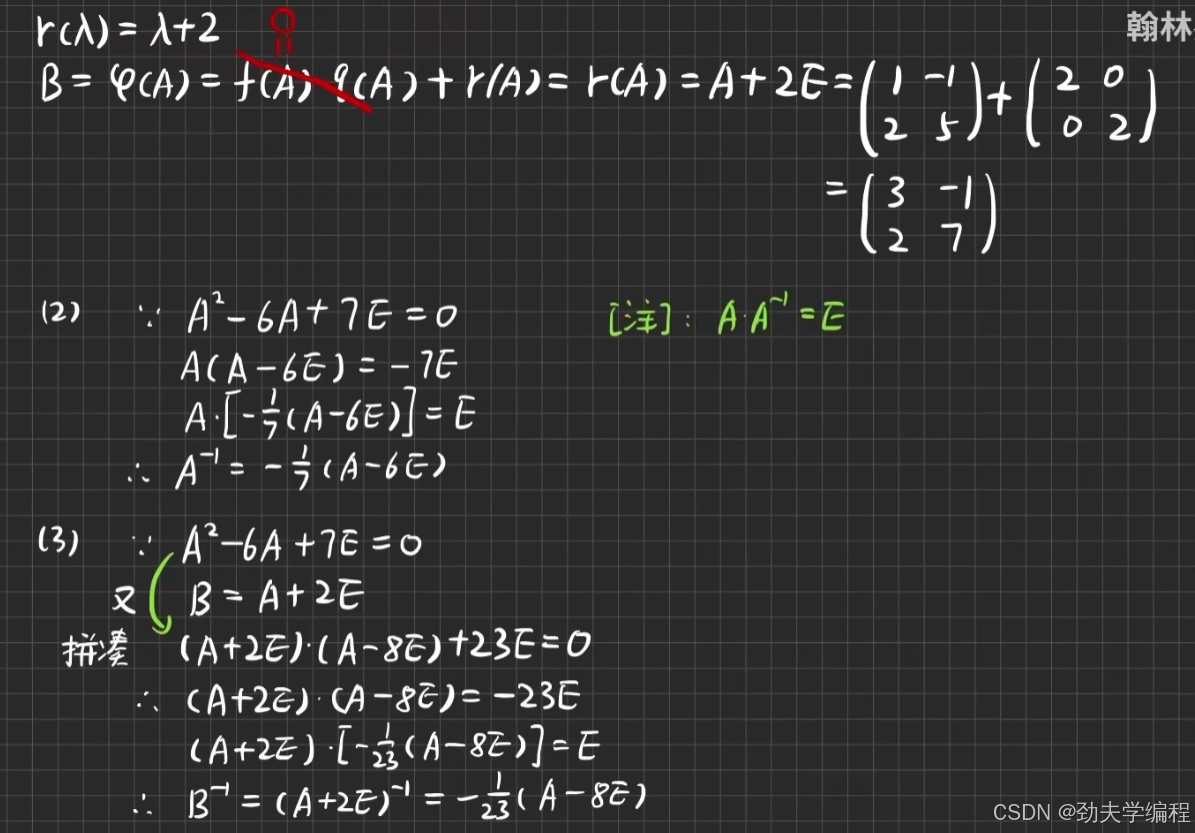 r(λ) = λ+2
翰林
0
=
B = φ(A) = f(A) q(A) + r(A) = r(A) = A + 2E = (1 -1 2 5) + (2 0 0 2)
= (3 -1 2 7)
(2) ∵ A² - 6A + 7E = 0 [注]: A·A⁻¹ = E
A(A - 6E) = -7E
A·[-1/7(A-6E)] = E
∴ A⁻¹ = -1/7(A-6E)
(3) ∵ A² - 6A + 7E = 0
又 B = A + 2E
拼凑 (A+2E)·(A-8E)+23E=0
∴ (A+2E)·(A-8E) = -23E
(A+2E)·[-1/23(A-8E)] = E
∴ B⁻¹ = (A+2E)⁻¹ = -1/23(A-8E)
CSDN @劲夫学编程